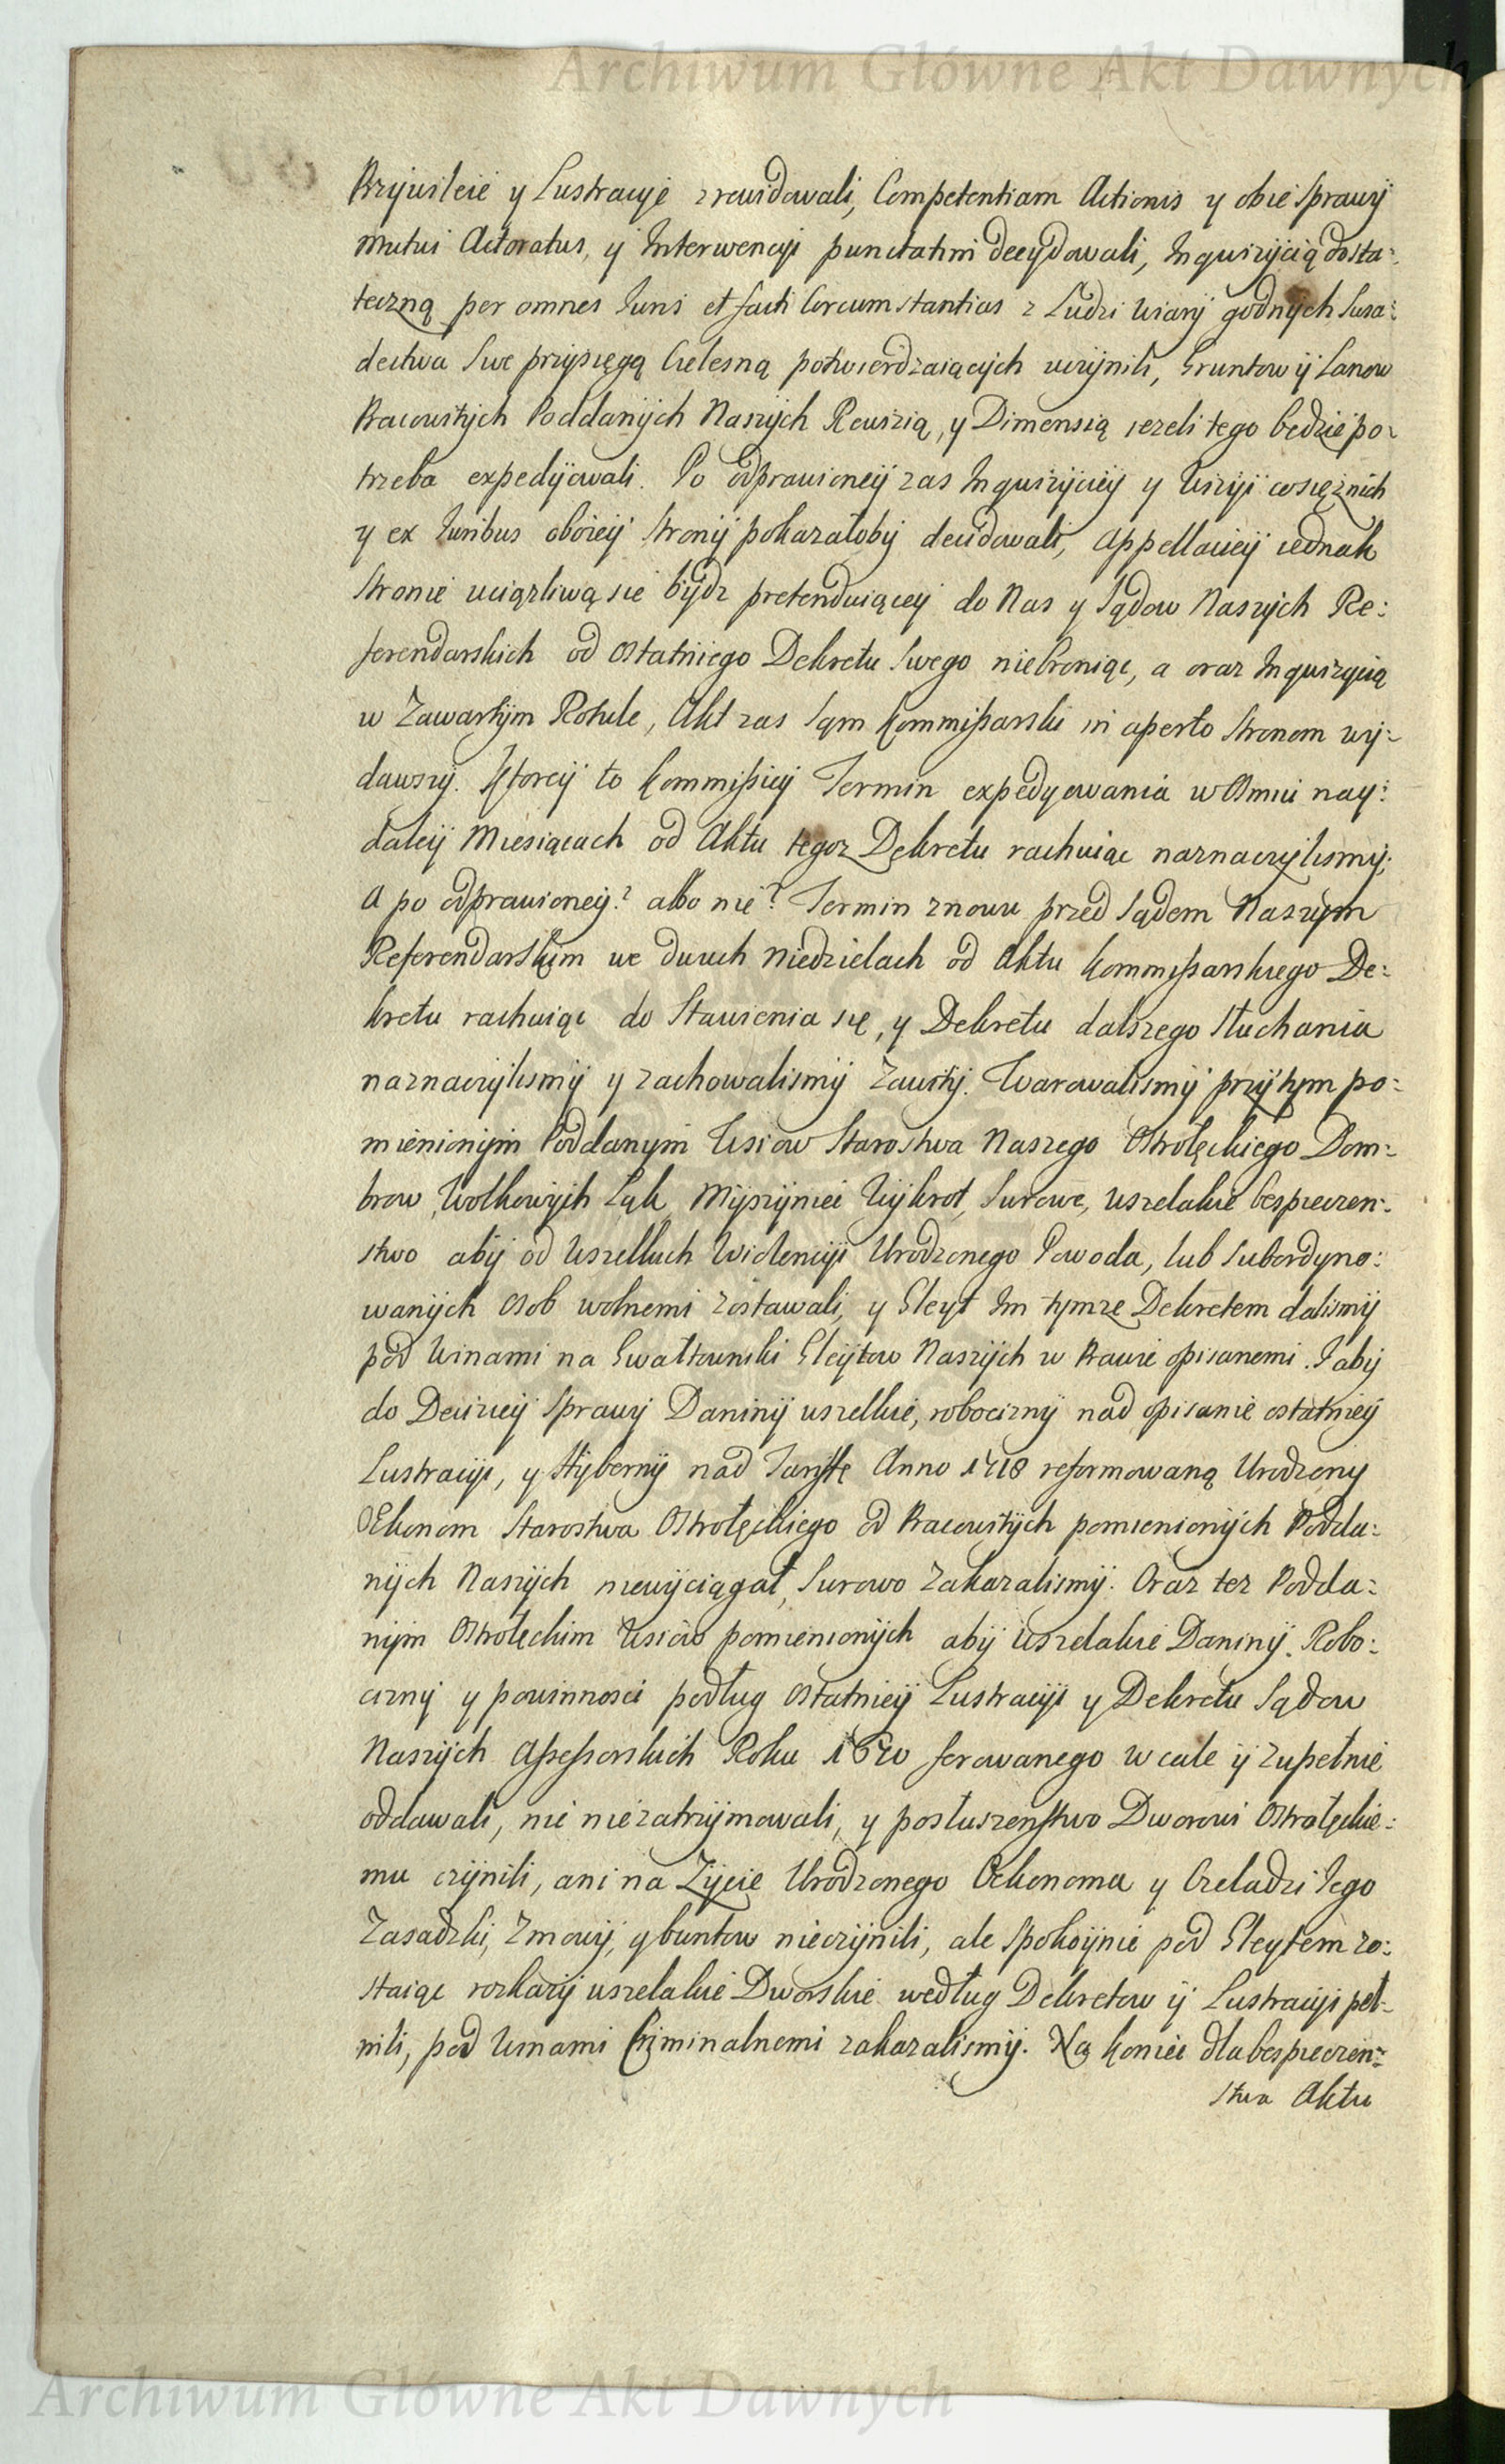 Archiwum Główne Akt Dawnych
Przywileie y Lustracyje zrewidowali, Competentiam Actionis y obie Sprawy
mutui Actoratus, y Interwencyi punctatim decydowali, Inquizycią dosta:
teczną per omnes Juris et facti Circumstantias z Ludzi Wiary godnych Swia:
dectwa Swe przysięgą Cielesną potwierdzaiących uczynili, Gruntow y Lanow
Pracowitych Poddanych Naszych Rewizią, y Dimensią iezeli tego będzie po:
trzeba expedyowali. Po odprawioney zas Inquizycyey y Wizyi co się z nich
y ex Juribus oboiey Strony pokazałoby decidowali, Appellacyey iednak
Stronie uciązliwą sie bydz pretenduiącey do Nas y Sądow Naszych Re:
ferendarskich od ostatniego Dekretu Swego niebroniąc, a oraz Inquizycią
w Zawartym Rotule, Akt zas Sąm Kommissarski in aperto Stronom wy:
dawszy. Ktorey to Kommissiey Termin expedyowania w Osmiu nay:
daley Miesiącach od Aktu tegoz Dekretu rachuiąc naznaczylismy;
A po odprawioney? albo nie? Termin znowu przed Sądem Naszym
Referendarskim we dwuch Niedzielach od Aktu Kommissarskiego De:
kretu rachuiąc do Stawienia się, y Dekretu dalszego Słuchania
naznaczylismy y zachowalismy Zawity. Warowalismy przytym po:
mienionym Poddanym Wsiow Starostwa Naszego Ostrołęckiego Dom:
brow, Wolkowych Łąk, Myszyniei Wykrot, Surowe, wszelakie bespieczen:
stwo aby od wszelkich Wiolencyi Urodzonego Powoda, lub Subordyno:
wanych Osob wolnemi zostawali, y Gleyt Im tymze Dekretem dalismy
pod Winami na Gwałtowniki Gleytow Naszych w Prawie opisanemi. I aby
do Decizyey Sprawy Daniny wszelkie, robocizny nad opisanie ostatniey
Lustracyi, y Hyberny nad Taryffę Anno 1718 reformowaną Urodzony
Ekonom Starostwa Ostrołęckiego od Pracowitych pomienionych Podda:
nych Naszych niewyciągał, Surowo zakazalismy. Oraz tez Podda:
nym Ostrołęckim Wsiow pomienionych aby wszelakie Daniny, Robo:
cizny y powinnosci podług ostatniey Lustracyi y Dekretu Sądow
Naszych Assessorskich Roku 1670 ferowanego w cale y zupełnie
oddawali, nic niezatrzymowali, y posłuszenstwo Dworowi Ostrołęckie:
mu czynili, ani na Zycie Urodzonego Oekonoma y Czeladzi Jego
Zasadzki, Zmowy, y buntow nieczynili, ale Spokoynie pod Gleytem zo:
staiąc rozkazy wszelakie Dworskie według Dekretow y Lustracyi peł:
nili, pod Winami Criminalnemi zakazalismy. Na koniec dla bespieczen:
stwa Aktu
Archiwum Główne Akt Dawnych